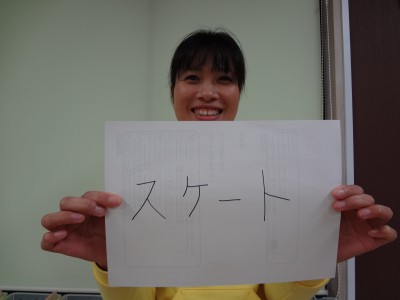 スケート